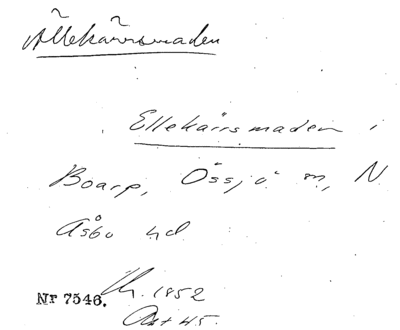 Ällekärrsmaden
Ellekärrsmaden i
Boarp, Össjö sn, N
Åsbo hd
Nr 7546. 1852
Akt 45.